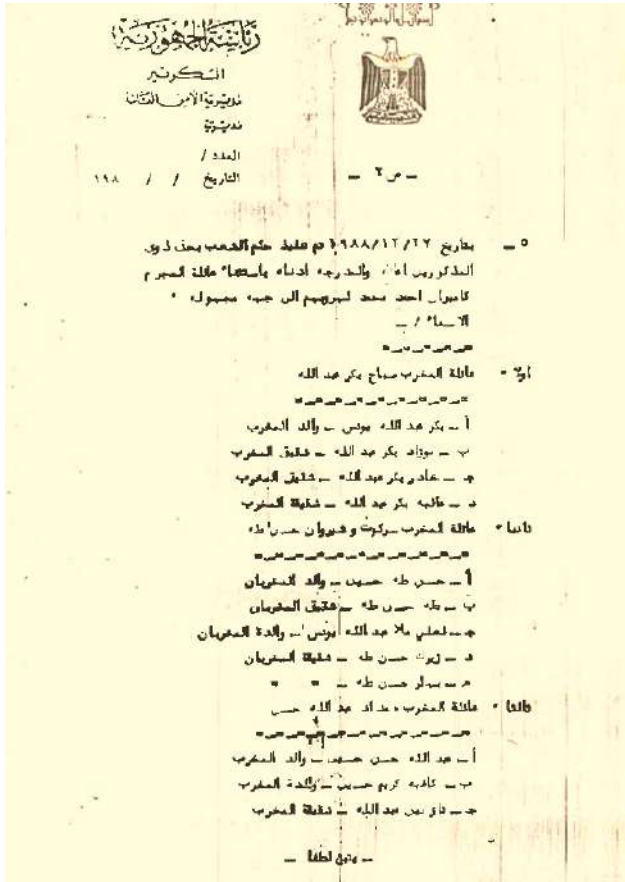 رئاسة الجمهورية
السكرتير
مديرية الأمن العامة
مديرية
العدد /
التاريخ / / ١٩٨
ـ ص ٢ ـ
٥ ـ بتاريخ ١٩٨٨/١٢/٢٧ تم تنفيذ حكم الشعب بحق ذوي
المذكورين أعلاه والمدرجه أدناه باستثناء عائلة المجرم
كامران احمد محمد لهروبهم الى جهة مجهوله ٠
الاسماء / ـ
اولا ٠ عائلة المخرب صباح بكر عبد الله
أ ـ بكر عبد الله يونس ـ والد المخرب
ب ـ بكر عبد الله ـ شقيق المخرب
جـ ـ بكر عبد الله ـ شقيق المخرب
د ـ بكر عبد الله ـ شقيقة المخرب
ثانيا ٠ عائلة المخرب سركوت و شيروان حسن طه
أ ـ حسن طه حسين ـ والد المخربان
ب ـ طه حسن طه ـ شقيق المخربان
جـ ـ ملا عبد الله يونس ـ والدة المخربان
د ـ حسن طه ـ شقيقة المخربان
هـ ـ حسن طه ـ = =
ثالثا ٠ عائلة المخرب عبد الله حسن
أ ـ عبد الله حسن حسين ـ والد المخرب
ب ـ كريم حسين ـ والدة المخرب
جـ ـ عبد الله ـ شقيقة المخرب
ـ يتبع لطفا ـ